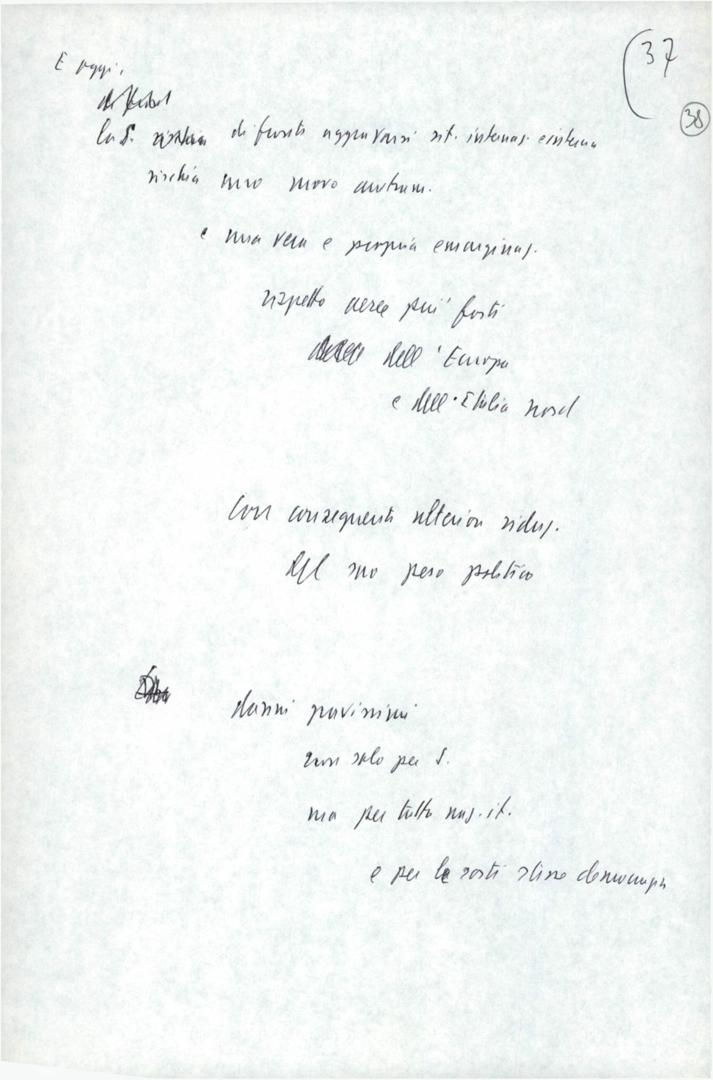 (37
38
E oggi,
la S. di fronte aggravarsi sit. internaz. e interna
rischia uno nuovo
e una vera e propria emarginaz.
rispetto aree più forti
dell'Europa
e dell'Italia Nord
con conseguenti ulteriori riduz.
del suo peso politico
danni gravissimi
non solo per S.
ma per tutta naz. it.
e per le sorti stesse democrazia